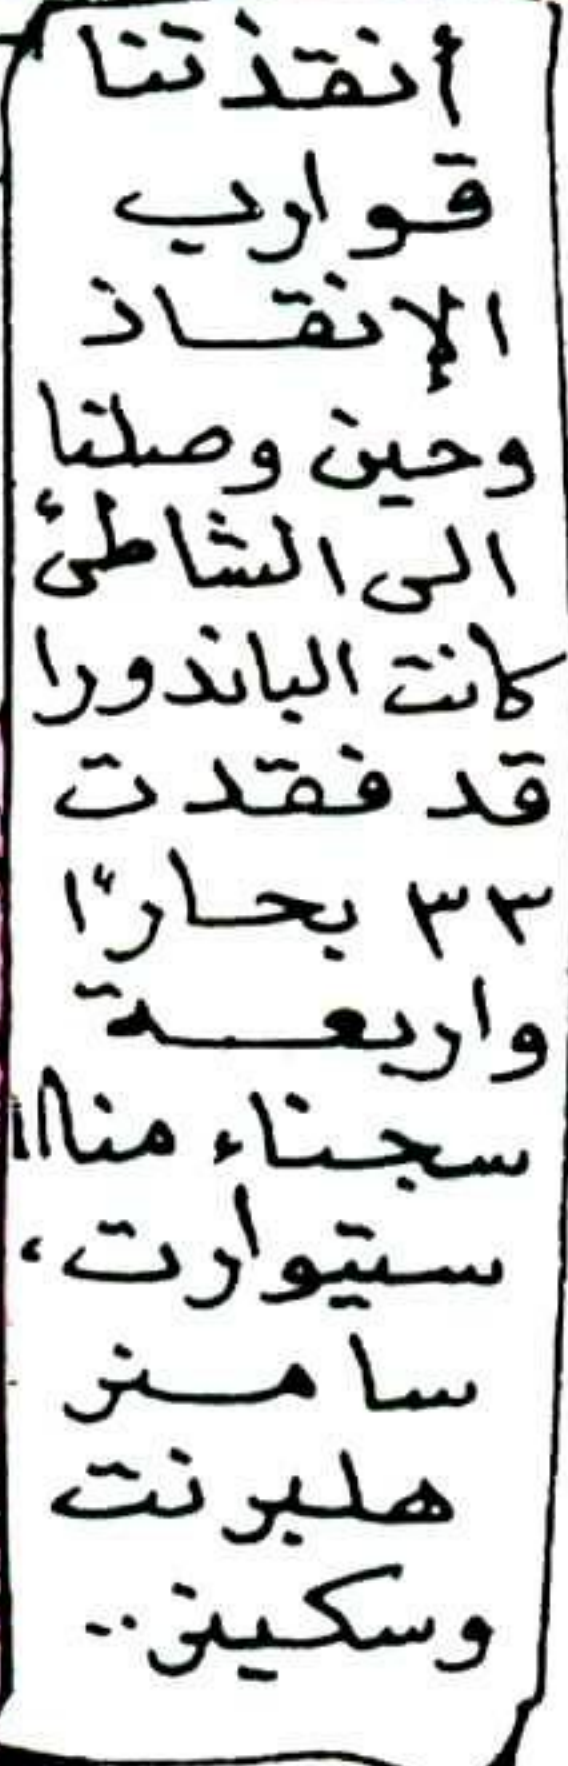 أنقذتنا
قوارب
الإنقاذ
وحين وصلنا
الى الشاطئ
كانت الباندورا
قد فقدت
٣٣ بحارًا
واربعة
سجناء منا
ستيوارت،
سامنر
هلبرنت
وسكينر..